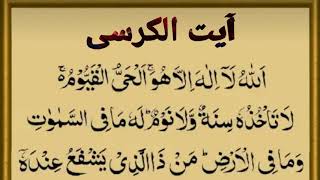 آیت الکرسی
اَللّٰهُ لَاۤ اِلٰهَ اِلَّا هُوَۚ اَلْحَیُّ الْقَیُّوْمُ ۚ
لَا تَاْخُذُهٗ سِنَةٌ وَّلَا نَوْمٌ ؕ لَهٗ مَا فِی السَّمٰوٰتِ
وَمَا فِی الْاَرْضِ ؕ مَنْ ذَا الَّذِیْ یَشْفَعُ عِنْدَهٗۤ